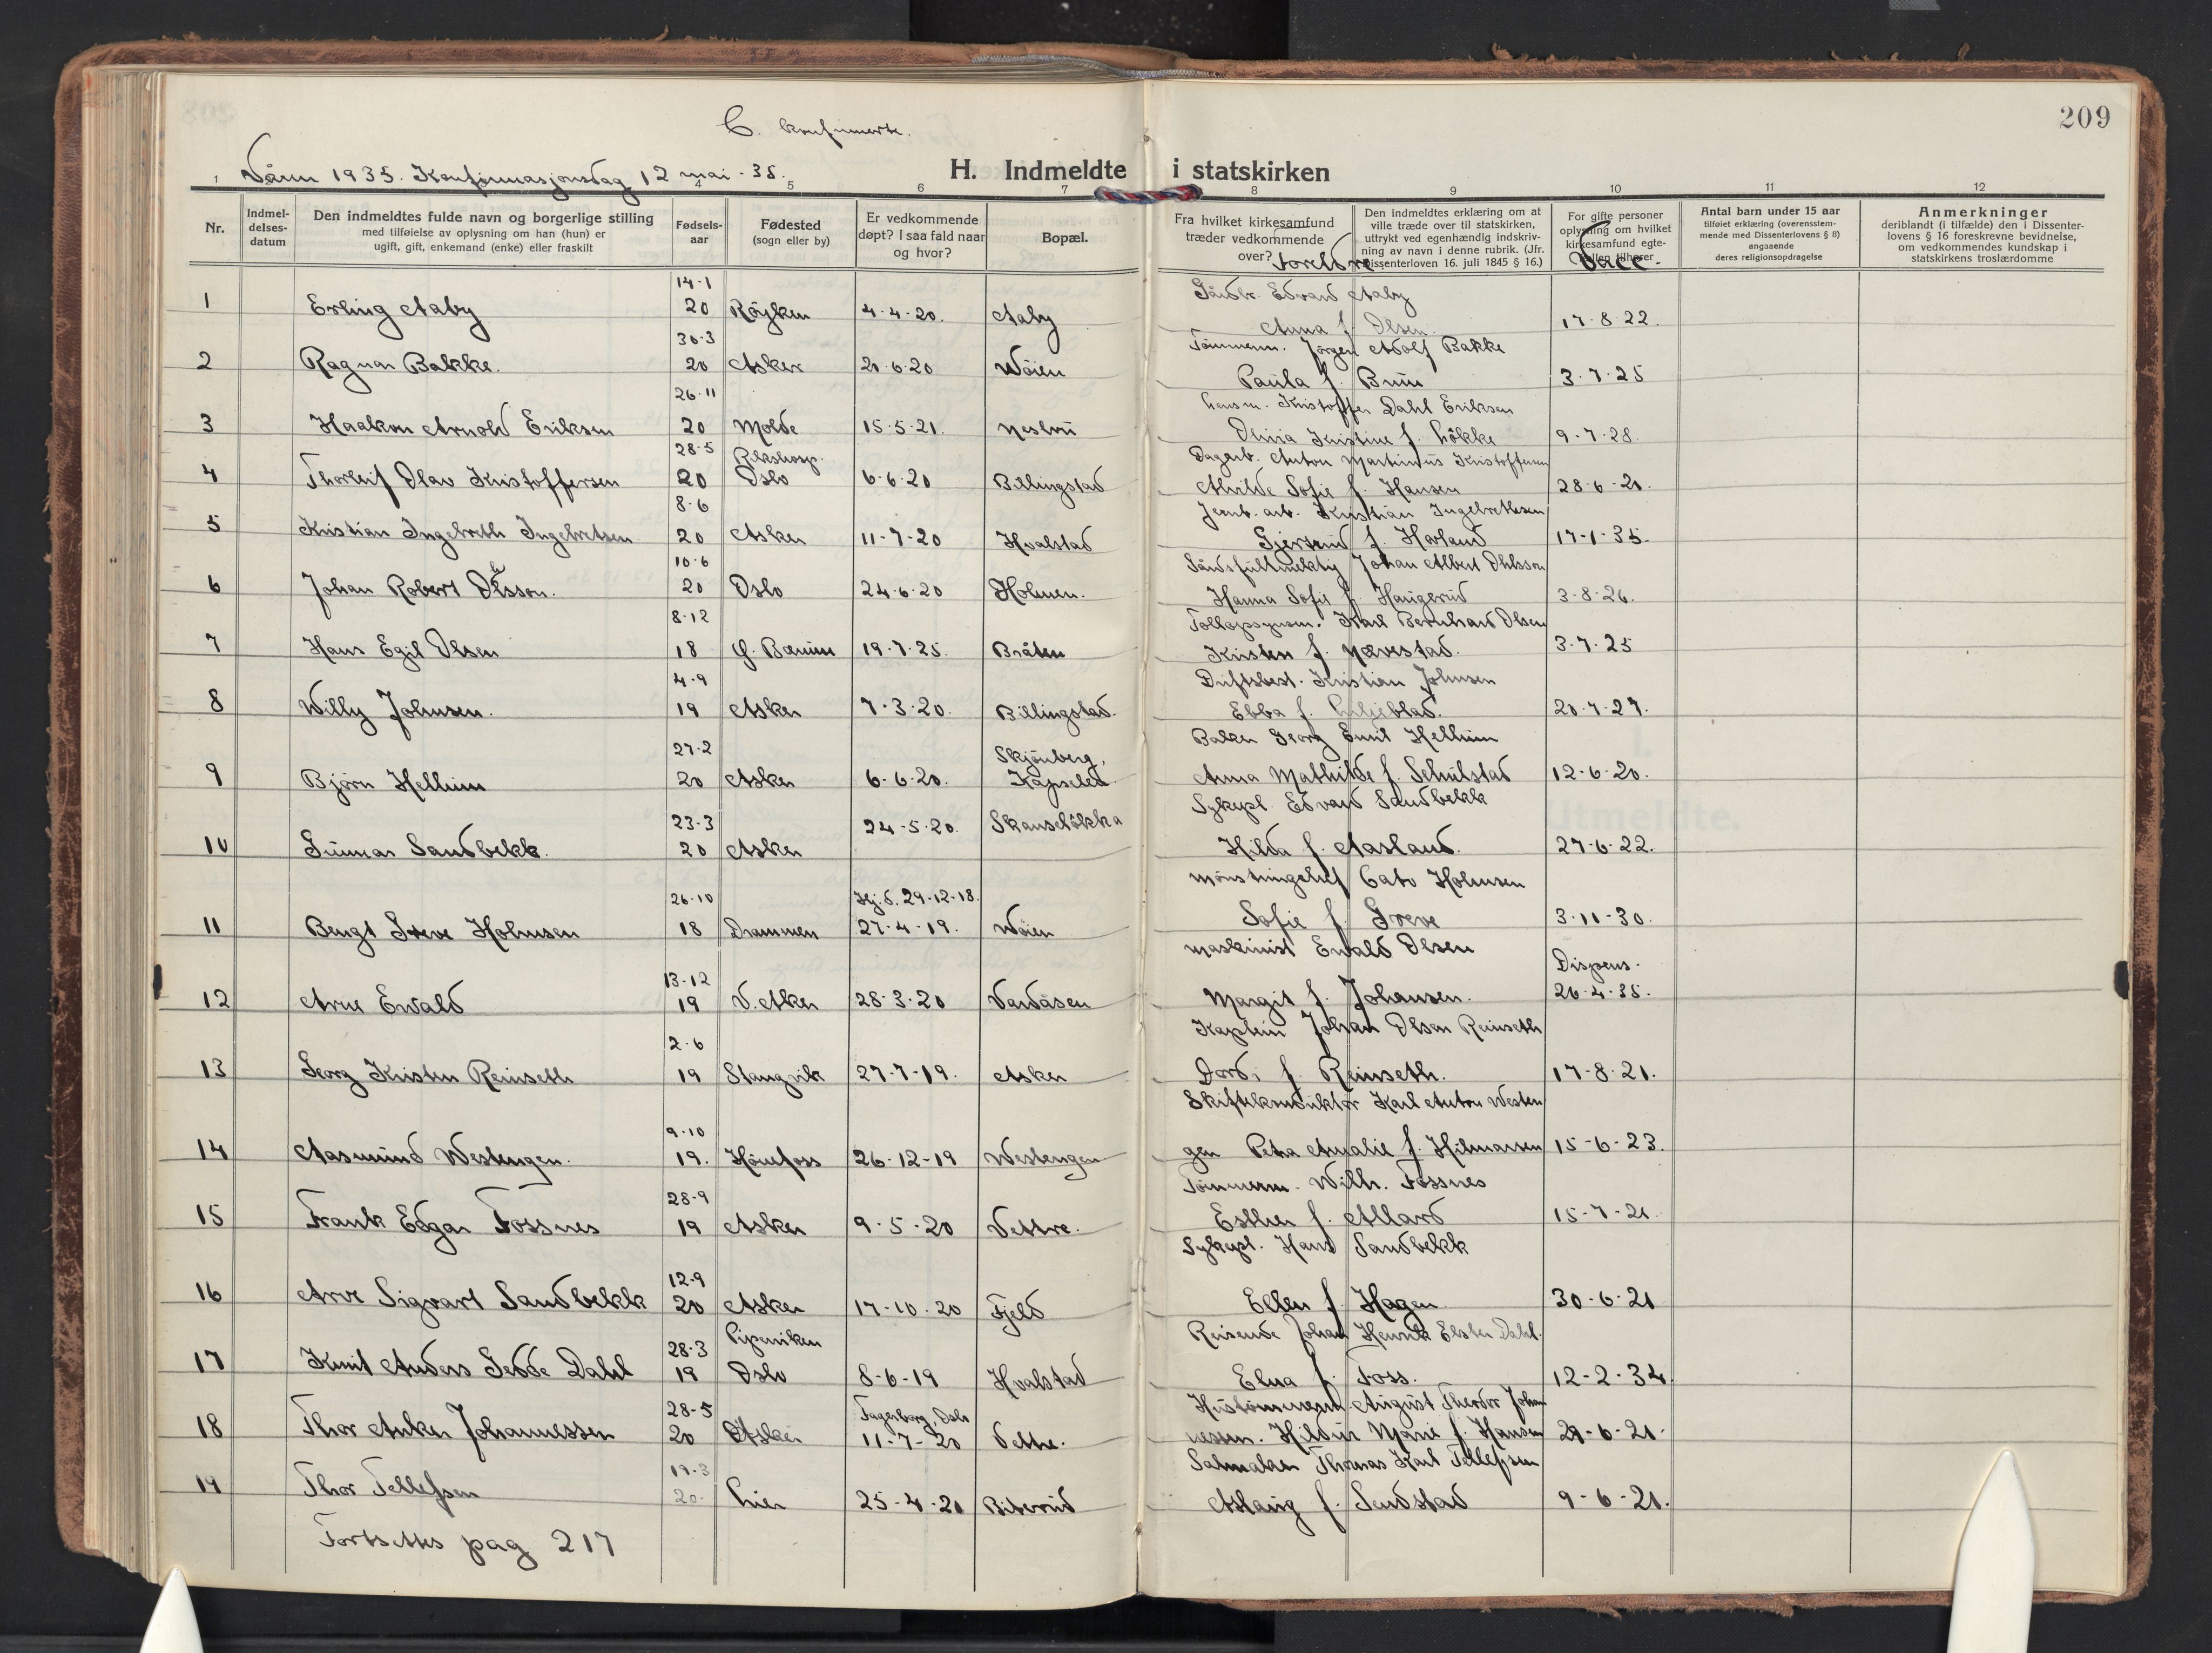 209
C. konfirmerte.
Våren 1935. Konfirmasjonsdag 12 mai - 35.
H. Indmeldte i statskirken
1 4 5 6 7 8 9 10 11 12
Nr.
Indmel-
delses-
datum
Den indmeldtes fulde navn og borgerlige stilling
med tilføielse av oplysning om han (hun) er
ugift, gift, enkemand (enke) eller fraskilt
Fødsels-
aar
Fødested
(sogn eller by)
Er vedkommende
døpt? I saa fald naar
og hvor?
Bopæl.
Fra hvilket kirkesamfund
træder vedkommende
over?
Foreldre
Den indmeldtes erklæring om at
ville træde over til statskirken,
uttrykt ved egenhændig indskriv-
ning av navn i denne rubrik. (Jfr.
Dissenterloven 16. juli 1845 § 16.)
For gifte personer
oplysning om hvilket
kirkesamfund egte-
fellen tilhører
Vacc.
Antal barn under 15 aar
tilføiet erklæring (overensstem-
mende med Dissenterlovens § 8)
angaaende
deres religionsopdragelse
Anmerkninger
deriblandt (i tilfælde) den i Dissenter-
lovens § 16 foreskrevne bevidnelse,
om vedkommendes kundskap i
statskirkens troslærdomme
14-1 Gårdbr. Edvard Aaby
1 Erling Aaby 20 Røyken 4-4-20. Aaby Anna f. Olsen. 17-8-22.
30-3 Tømmerm. Jørgen Adolf Bakke
2 Ragnar Bakke. 20 Asker 20-6-20 Wøien Paula f. Bruu 3-7-25
26-11 Kristoffer Dahl Eriksen
3 Haakon Arnold Eriksen 20 Molde 15-5-21. Nesbru Olivia Kristine f. Løkke 9-7-28.
28-5 Rikshosp. Dagarb. Anton Martinius Kristoffersen
4 Thorleif Olav Kristoffersen 20 Oslo 6-6-20 Billingstad Alvilde Sofie f. Hansen 28-6-21.
8-6 Jernb. arb. Kristian Ingebrethsen
5 Kristian Ingebreth Ingebretsen 20 Asker 11-7-20 Hvalstad Gjertrud f. Havland 17-1-35.
10-6 Johan Albert Ohlsson
6 Johan Robert Ohlsson. 20 Oslo 24-6-20 Holmen. Hanna Sofie f. Haugerud 3-8-26.
8-12 Tollopsynsm. Karl Bernhard Olsen
7 Hans Egil Olsen 18 Ø. Bærum 19-7-25. Bråten Kristen f. Nævestad. 3-7-25
4-9 Driftsbest. Kristian Johnsen
8 Willy Johnsen. 19 Asker 7-3-20. Billingstad. Ebba f. Liljeblad. 20-7-27.
27-2 Skjønberg, Baker Georg Emil Hellum
9 Bjørn Hellum 20 Asker 6-6-20. Anna Mathilde f. Schulstad 12-6-20.
23-3 24-5-20. Skanseløkka Sykepl. Edvard Sandbekk
10 Gunnar Sandbekk. 20 Asker Hilda f. Aasland. 27-6-22.
26-10 Hj.d. 29-12-18. Mønstringschef Cato Holmsen
11 Bengt Greve Holmsen 18 Drammen 27-4-19. Wøien Sofie f. Greve 3-11-30.
13-12 Maskinist Ewald Olsen Dispens.
12 Arne Ewald 19 V. Aker 28-3-20 Vardåsen Margit f. Johansen. 26-4-35.
2-6 Kaptein Johan Olsen Reinseth
13 Georg Kristen Reinseth 19 Stangvik 27-7-19. Asker Dordi f. Reinseth. 17-8-21.
9-10 Skiftekonduktør Karl Anton Westen
14 Aasmund Westengen. 19. Hønefoss 26-12-19 Westengen gen Petra Amalie f. Hilmarsen 15-6-23.
28-9 Tømmerm. Wilh. Fossnes
15 Frank Edgar Fossnes 19 Asker 9-5-20 Vettre. Esther f. Allard 15-7-21.
12-9 Sykepl. Hans Sandbekk
16 Arve Sigvart Sandbekk 20 Asker 17-10-20 Fjeld Ellen f. Hagen 30-6-21
28-3 Piperviken Reisende Johan Henrik Elster Dahl.
17 Knut Anders Gedde Dahl 19 Oslo 8-6-19 Hvalstad Elna f. Foss. 12-2-34
28-5 Fagerborg, Oslo Hustømmerm. August Theodor Johan
18 Thor Anker Johannessen 20 Asker 11-7-20 Vettre. nessen. Hildur Marie f. Hansen 29-6-21.
19-3 Salmaker Thomas Karl Tellefsen
19 Thor Tellefsen 20. Lier 25-4-20 Bleverud Aslaug f. Sendstad 9-6-21.
Fortsettes pag 217